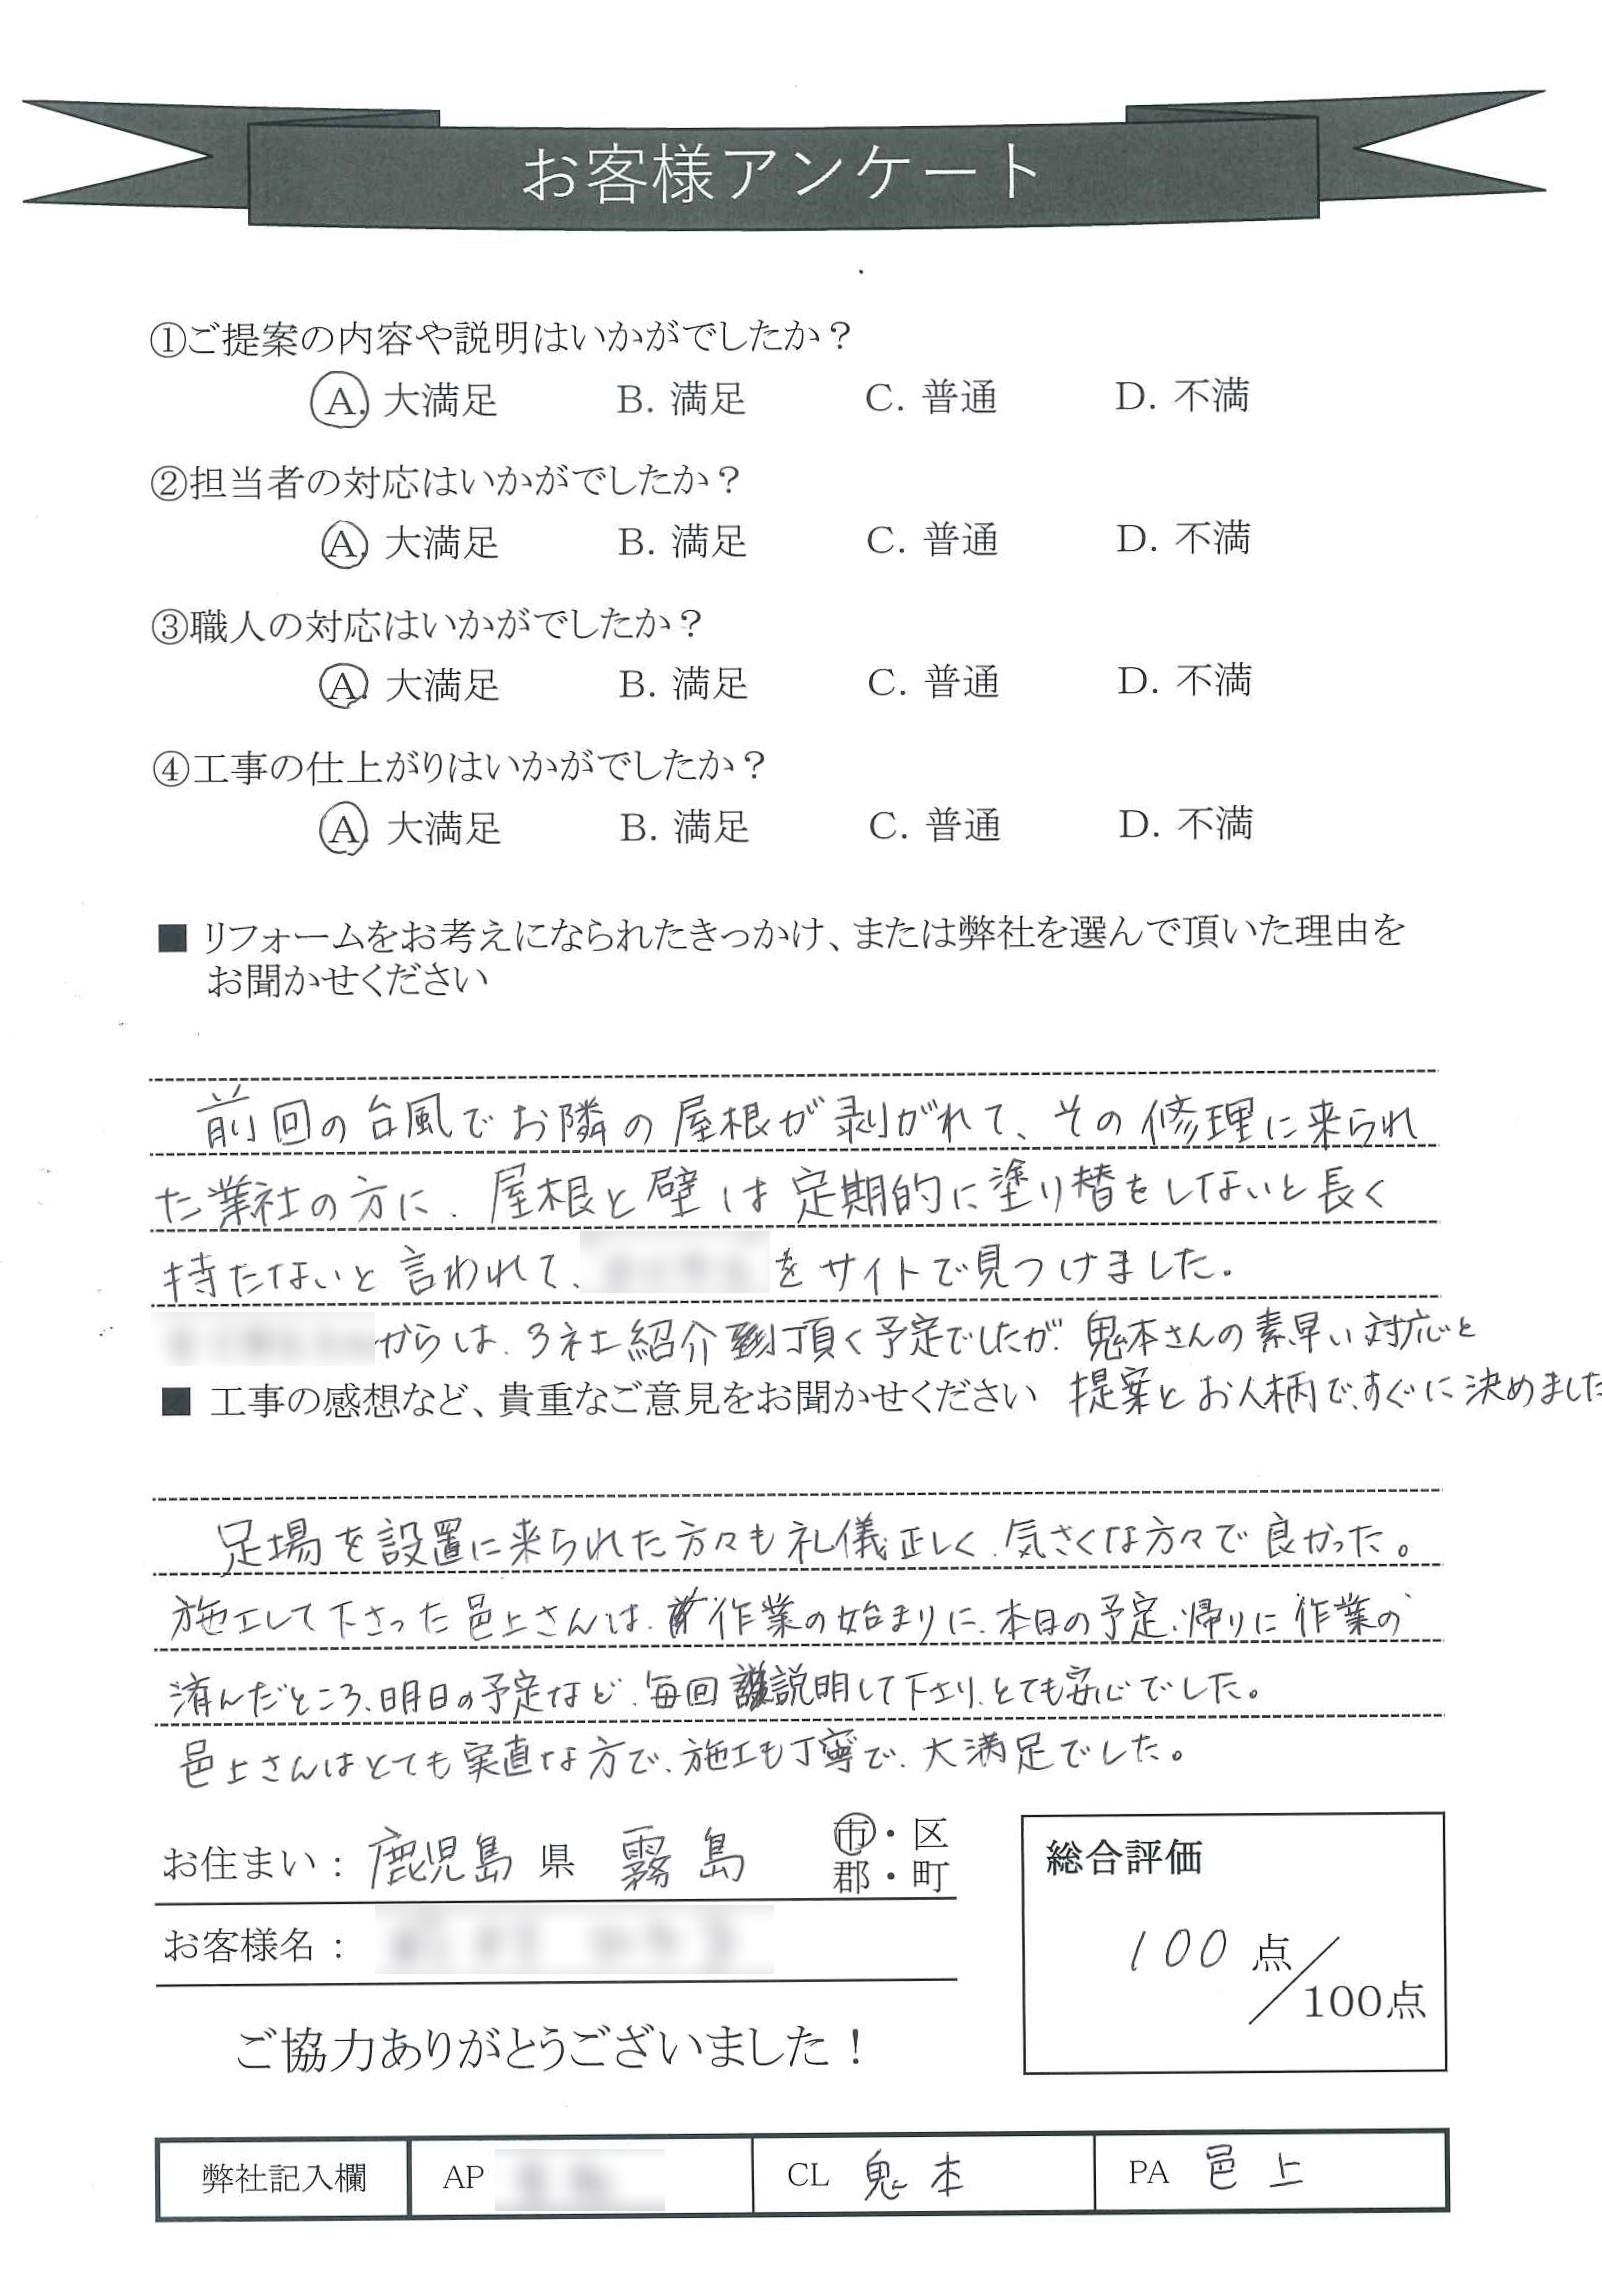 お客様アンケート
①ご提案の内容や説明はいかがでしたか？
A. 大満足 B. 満足 C. 普通 D. 不満
②担当者の対応はいかがでしたか？
A. 大満足 B. 満足 C. 普通 D. 不満
③職人の対応はいかがでしたか？
A. 大満足 B. 満足 C. 普通 D. 不満
④工事の仕上がりはいかがでしたか？
A. 大満足 B. 満足 C. 普通 D. 不満
■ リフォームをお考えになられたきっかけ、または弊社を選んで頂いた理由を
お聞かせください
前回の台風でお隣の屋根が剥がれて、その修理に来られ
た業社の方に、屋根と壁は定期的に塗り替をしないと長く
持たないと言われて、をサイトで見つけました。
からは、3社紹介頂く予定でしたが、鬼本さんの素早い対応と
提案とお人柄で、すぐに決めました
■ 工事の感想など、貴重なご意見をお聞かせください
足場を設置に来られた方々も礼儀正しく、気さくな方々で良かった。
施工して下さった邑上さんは、作業の始まりに、本日の予定、帰りに作業の
済んだところ、明日の予定など、毎回説明して下さり、とても安心でした。
邑上さんはとても実直な方で、施工も丁寧で、大満足でした。
お住まい： 鹿児島 県 霧島 市・区
郡・町
お客様名：
総合評価
100 点／100点
ご協力ありがとうございました！
弊社記入欄 AP CL 鬼本 PA 邑上